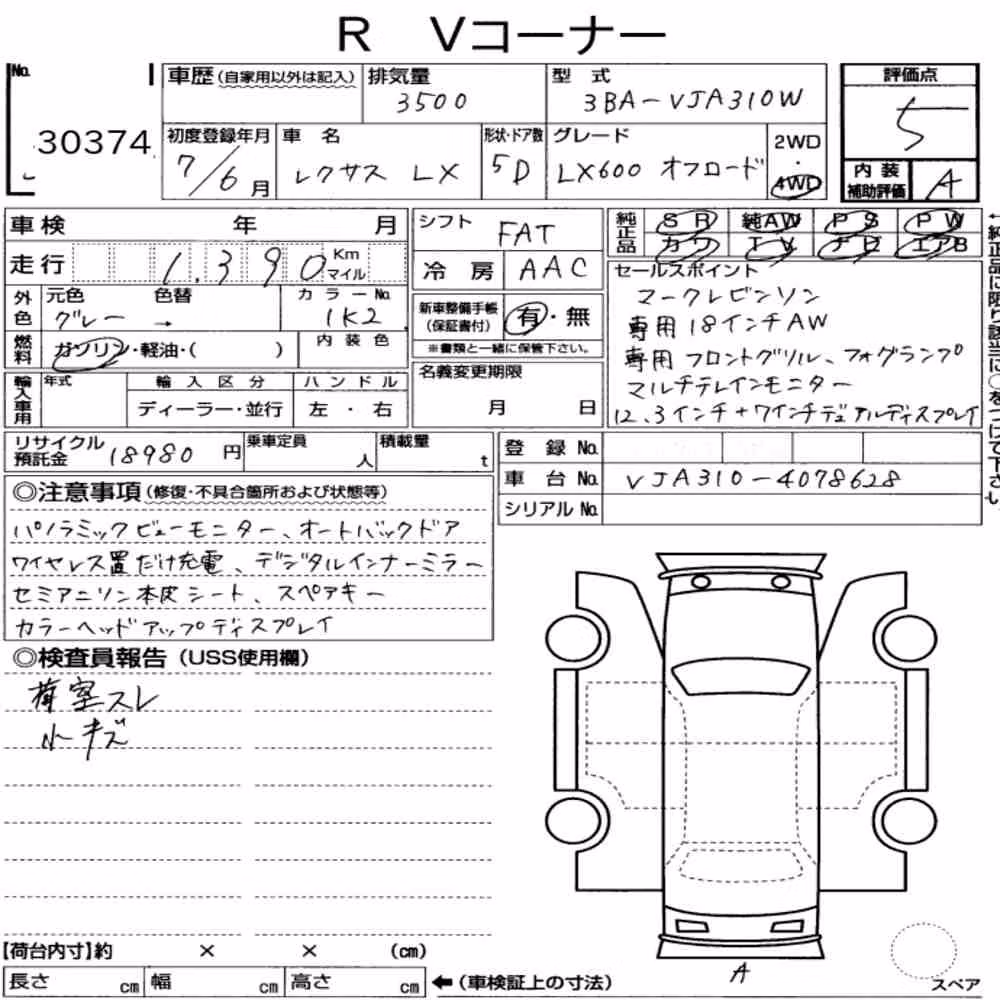 R Vコーナー
No. 30374
車歴 (自家用以外は記入)
排気量 3500
型式 3BA-VJA310W
評価点 5
初度登録年月 7/6月
車名 レクサス LX
形状・ドア数 5D
グレード LX600 オフロード
2WD・4WD
内装補助評価 A
車検 年 月
シフト FAT
純正品 SR 純AW PS PW
カワ TV ナビ エアB
走行 1,390 Km マイル
冷房 AAC
セールスポイント
マークレビンソン
専用18インチAW
専用フロントグリル、フォグランプ
マルチテレインモニター
12.3インチ+7インチデュアルディスプレイ
←純正品に限り該当に○をつけて下さい
外色 元色 グレー → 色替
カラーNo. 1K2
新車整備手帳(保証書付) 有・無
※書類と一緒に保管下さい。
燃料 ガソリン・軽油・( )
内装色
名義変更期限 月 日
輸入車用 年式
輸入区分 ディーラー・並行
ハンドル 左・右
リサイクル預託金 18980円
乗車定員 人
積載量 t
登録No.
車台No. VJA310-4078628
シリアルNo.
◎注意事項 (修復・不具合箇所および状態等)
パノラミックビューモニター、オートバックドア
ワイヤレス置だけ充電、デジタルインナーミラー
セミアニリン本皮シート、スペアキー
カラーヘッドアップディスプレイ
◎検査員報告 (USS使用欄)
荷室スレ
小キズ
A
スペア
【荷台内寸】約 × × (cm)
長さ cm 幅 cm 高さ cm ←(車検証上の寸法)